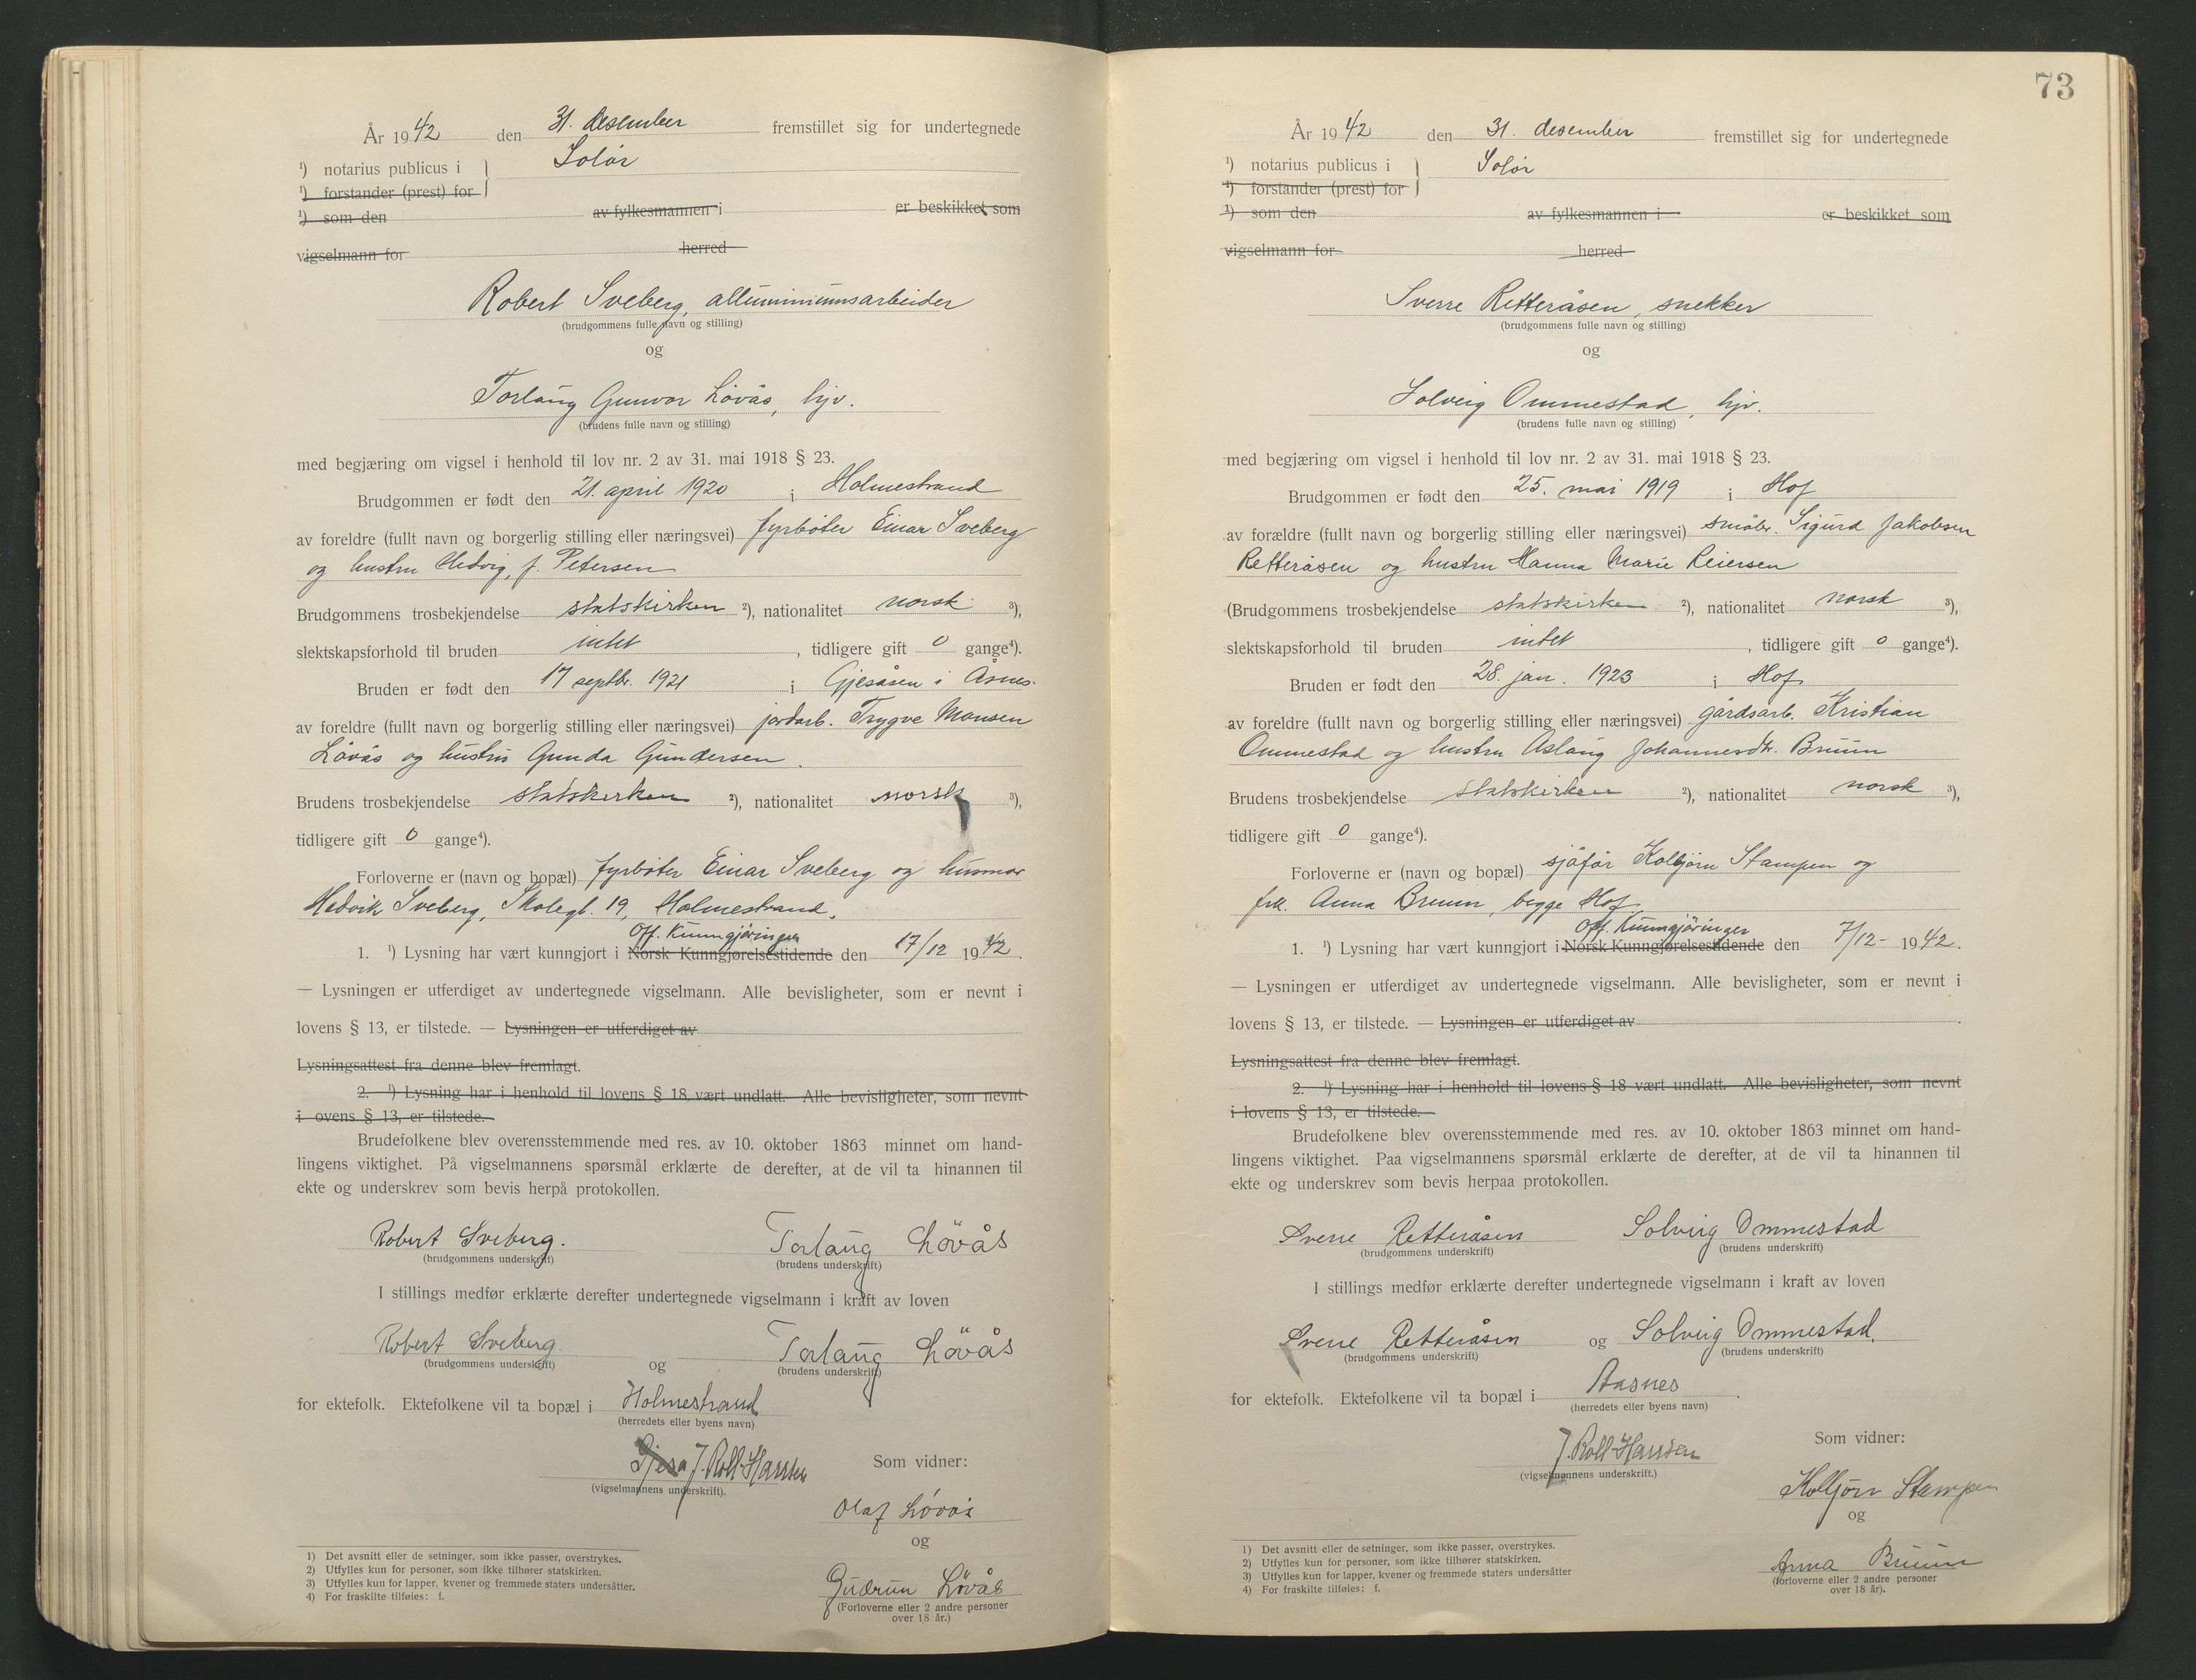 År 1942 den 31. desember fremstillet sig for undertegnede
¹) notarius publicus i } Solør
¹) forstander (prest) for
¹) som den av fylkesmannen i er beskikket som
vigselmann for herred
Robert Sveberg, alluminiumsarbeider
(brudgommens fulle navn og stilling)
og
Torlaug Gunvor Løvås, hjv.
(brudens fulle navn og stilling)
med begjæring om vigsel i henhold til lov nr. 2 av 31. mai 1918 § 23.
Brudgommen er født den 21. april 1920 i Holmestrand
av foreldre (fullt navn og borgerlig stilling eller næringsvei) fyrbøter Einar Sveberg
og hustru Hedvig, f. Petersen
Brudgommens trosbekjendelse statskirken ²), nationalitet norsk ³),
slektskapsforhold til bruden intet , tidligere gift 0 gange⁴).
Bruden er født den 17 septbr. 1921 i Gjesåsen i Åsnes.
av foreldre (fullt navn og borgerlig stilling eller næringsvei) jordarb. Trygve Monsen
Løvås og hustru Gunda Gundersen.
Brudens trosbekjendelse statskirken ²), nationalitet norsk ³),
tidligere gift 0 gange⁴).
Forloverne er (navn og bopæl) fyrbøter Einar Sveberg og husmor
Hedvik Sveberg, Skolegt. 19, Holmestrand.
Off. Kunngjøringer
1. ¹) Lysning har vært kunngjort i Norsk Kunngjørelsestidende den 17/12 1942.
— Lysningen er utferdiget av undertegnede vigselmann. Alle bevisligheter, som er nevnt i
lovens § 13, er tilstede. — Lysningen er utferdiget av
Lysningsattest fra denne blev fremlagt.
2. ¹) Lysning har i henhold til lovens § 18 vært undlatt. Alle bevisligheter, som nevnt
i ovens § 13, er tilstede.
Brudefolkene blev overensstemmende med res. av 10. oktober 1863 minnet om hand-
lingens viktighet. På vigselmannens spørsmål erklærte de derefter, at de vil ta hinannen til
ekte og underskrev som bevis herpå protokollen.
Robert Sveberg. Torlaug Løvås
(brudgommens underskrift) (brudens underskrift)
I stillings medfør erklærte derefter undertegnede vigselmann i kraft av loven
Robert Sveberg og Torlaug Løvås
(brudgommens underskrift) (brudens underskrift)
for ektefolk. Ektefolkene vil ta bopæl i Holmestrand
(herredets eller byens navn)
J. Roll-Hansen Som vidner:
(vigselmannens underskrift).
Olaf Løvås
og
Gudrun Løvås
(Forloverne eller 2 andre personer
over 18 år.)
1) Det avsnitt eller de setninger, som ikke passer, overstrykes.
2) Utfylles kun for personer, som ikke tilhører statskirken.
3) Utfylles kun for lapper, kvener og fremmede staters undersåtter.
4) For fraskilte tilføies: f.
73
År 1942 den 31. desember fremstillet sig for undertegnede
¹) notarius publicus i } Solør
¹) forstander (prest) for
¹) som den av fylkesmannen i er beskikket som
vigselmann for herred
Sverre Retteråsen, snekker
(brudgommens fulle navn og stilling)
og
Solveig Ommestad, hjv.
(brudens fulle navn og stilling)
med begjæring om vigsel i henhold til lov nr. 2 av 31. mai 1918 § 23.
Brudgommen er født den 25. mai 1919 i Hof
av forældre (fullt navn og borgerlig stilling eller næringsvei) småbr. Sigurd Jakobsen
Retteråsen og hustru Hanna Marie Reiersen
(Brudgommens trosbekjendelse statskirken ²), nationalitet norsk ³),
slektskapsforhold til bruden intet , tidligere gift 0 gange⁴).
Bruden er født den 28. jan. 1923 i Hof
av foreldre (fullt navn og borgerlig stilling eller næringsvei) gårdsarb. Kristian
Ommestad og hustru Aslaug Johannesdtr. Bruun
Brudens trosbekjendelse statskirken ²), nationalitet norsk ³),
tidligere gift 0 gange⁴).
Forloverne er (navn og bopæl) sjåfør Kolbjørn Stampen og
frk. Anna Bruun, begge Hof
Off. Kunngjøringer
1. ¹) Lysning har vært kunngjort i Norsk Kunngjørelsestidende den 7/12- 1942.
— Lysningen er utferdiget av undertegnede vigselmann. Alle bevisligheter, som er nevnt i
lovens § 13, er tilstede. — Lysningen er utferdiget av .
Lysningsattest fra denne blev fremlagt.
2. ¹) Lysning har i henhold til lovens § 18 vært undlatt. Alle bevisligheter, som nevnt
i lovens § 13, er tilstede.
Brudefolkene blev overensstemmende med res. av 10. oktober 1863 minnet om hand-
lingens viktighet. Paa vigselmannens spørsmål erklærte de derefter, at de vil ta hinannen til
ekte og underskrev som bevis herpaa protokollen.
Sverre Retteråsen Solveig Ommestad
(brudgommens underskrift) (brudens underskrift)
I stillings medfør erklærte derefter undertegnede vigselmann i kraft av loven
Sverre Retteråsen og Solveig Ommestad.
(brudgommens underskrift) (brudens underskrift)
for ektefolk. Ektefolkene vil ta bopæl i Aasnes .
(herredets eller byens navn)
J. Roll-Hansen Som vidner:
(vigselmannens underskrift.)
Kolbjørn Stampen
og
Anna Bruun
(forloverne eller 2 andre personer
over 18 år).
1) Det avsnitt eller de setninger, som ikke passer, overstrykes.
2) Utfylles kun for personer, som ikke tilhører statskirken.
3) Utfylles kun for lapper, kvener og fremmede staters undersåtter
4) For fraskilte tilføies: f.